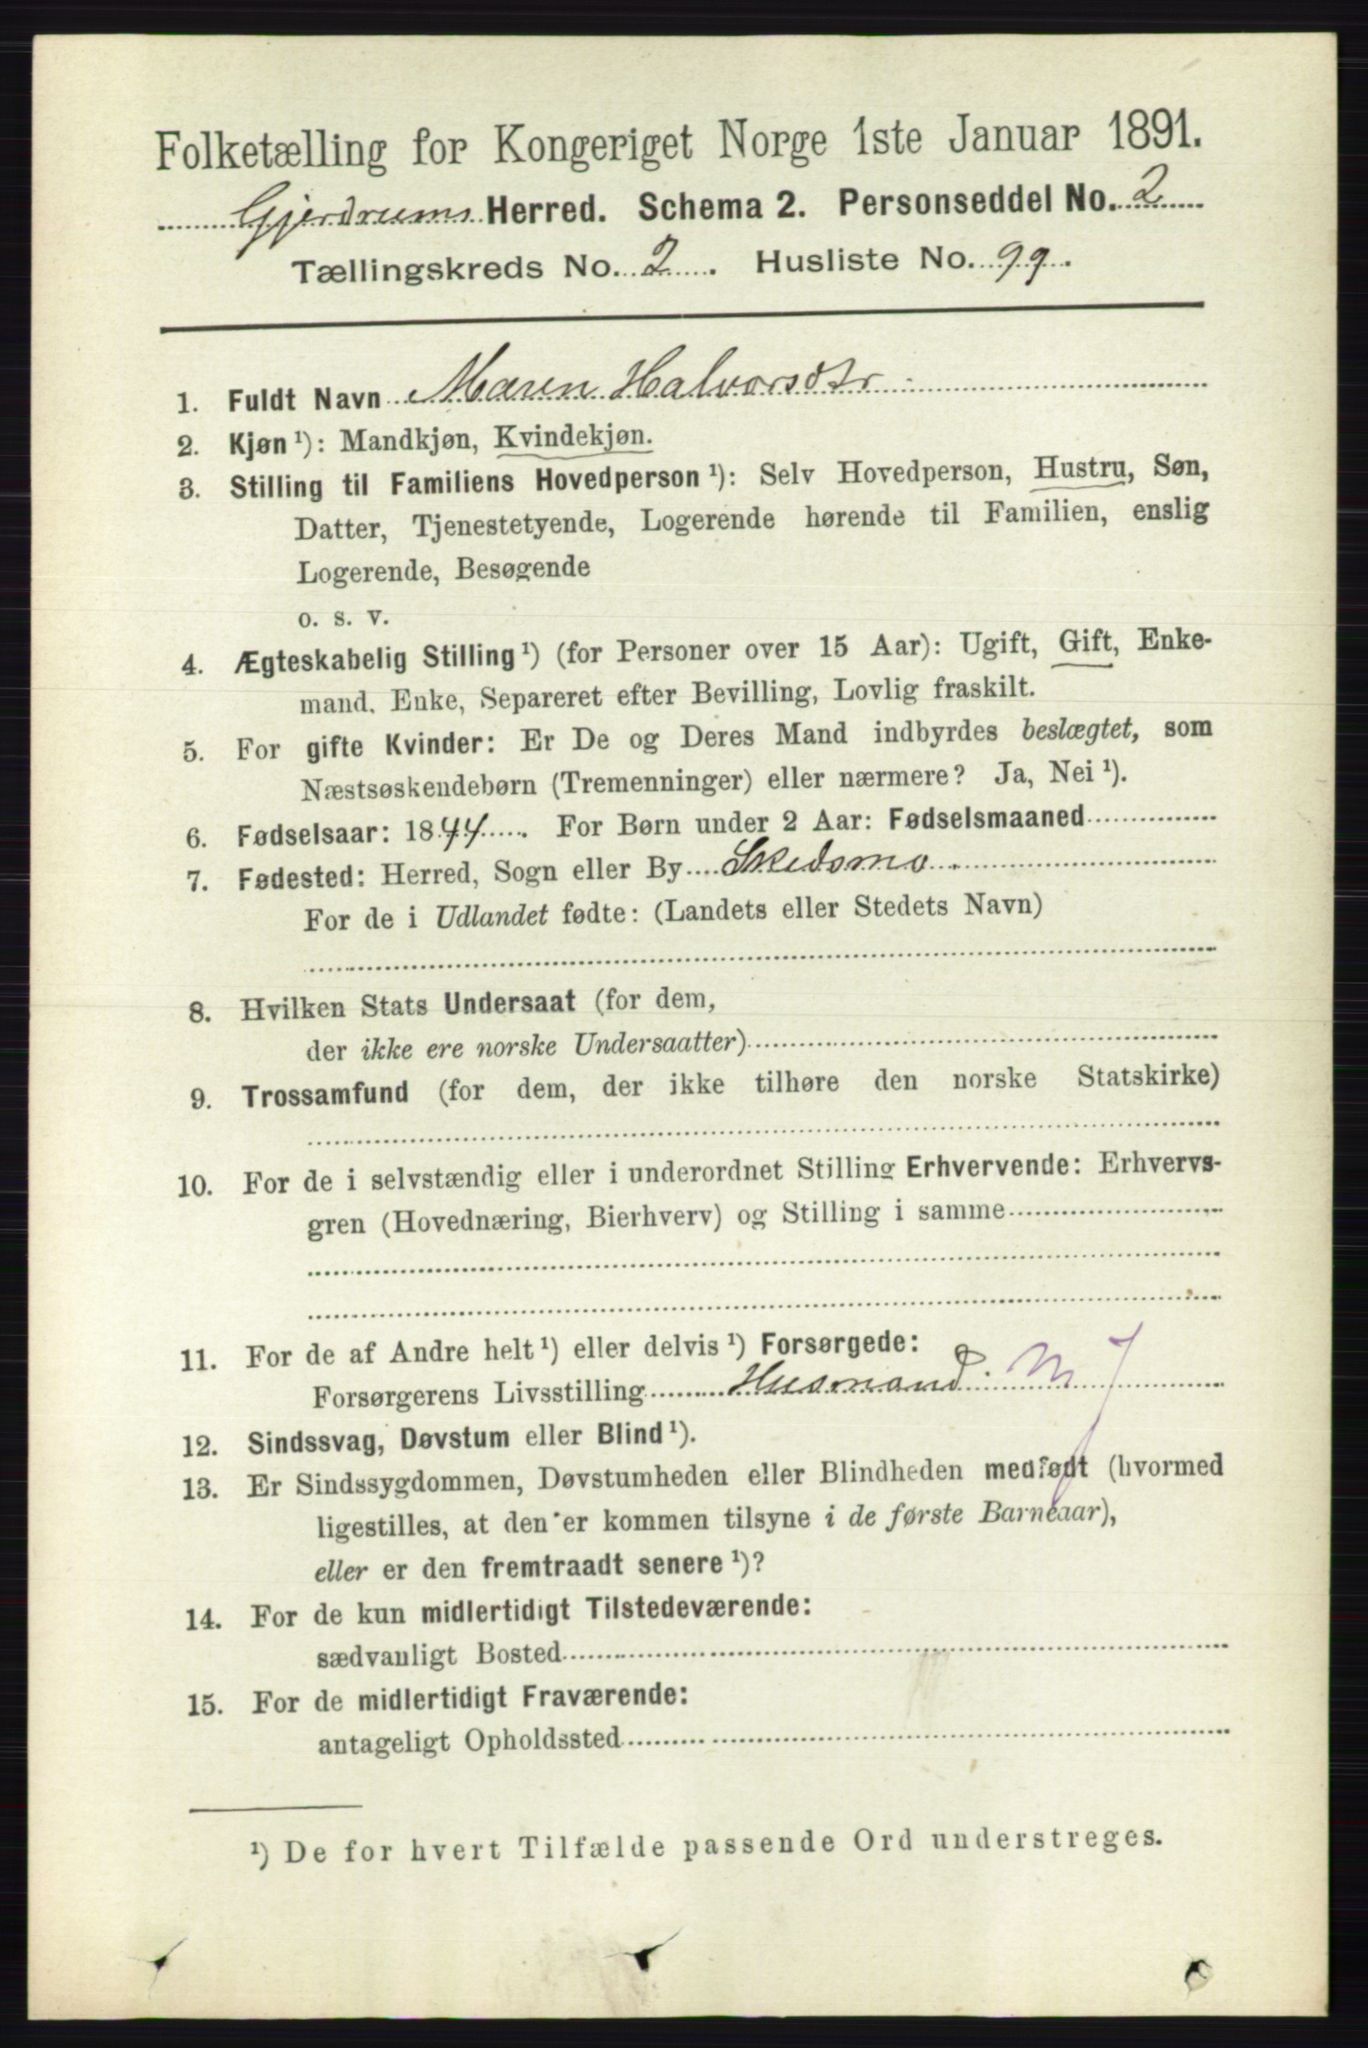 Folketælling for Kongeriget Norge 1ste Januar 1891.
Gjerdrums Herred. Schema 2. Personseddel No. 2
Tællingskreds No. 2. Husliste No. 99.
1. Fuldt Navn Maren Halvorsdtr
2. Kjøn ¹): Mandkjøn, Kvindekjøn.
3. Stilling til Familiens Hovedperson ¹): Selv Hovedperson, Hustru, Søn,
Datter, Tjenestetyende, Logerende hørende til Familien, enslig
Logerende, Besøgende
o. s. v.
4. Ægteskabelig Stilling ¹) (for Personer over 15 Aar): Ugift, Gift, Enke-
mand, Enke, Separeret efter Bevilling, Lovlig fraskilt.
5. For gifte Kvinder: Er De og Deres Mand indbyrdes beslægtet, som
Næstsøskendebørn (Tremenninger) eller nærmere? Ja, Nei ¹).
6. Fødselsaar: 1844. For Børn under 2 Aar: Fødselsmaaned
7. Fødested: Herred, Sogn eller By Skedsmo.
For de i Udlandet fødte: (Landets eller Stedets Navn)
8. Hvilken Stats Undersaat (for dem,
der ikke ere norske Undersaatter)
9. Trossamfund (for dem, der ikke tilhøre den norske Statskirke)
10. For de i selvstændig eller i underordnet Stilling Erhvervende: Erhvervs-
gren (Hovednæring, Bierhverv) og Stilling i samme
11. For de af Andre helt ¹) eller delvis ¹) Forsørgede:
Forsørgerens Livsstilling Husmand. M J
12. Sindssvag, Døvstum eller Blind ¹).
13. Er Sindssygdommen, Døvstumheden eller Blindheden medfødt (hvormed
ligestilles, at den er kommen tilsyne i de første Barneaar),
eller er den fremtraadt senere ¹)?
14. For de kun midlertidigt Tilstedeværende:
sædvanligt Bosted
15. For de midlertidigt Fraværende:
antageligt Opholdssted
¹) De for hvert Tilfælde passende Ord understreges.